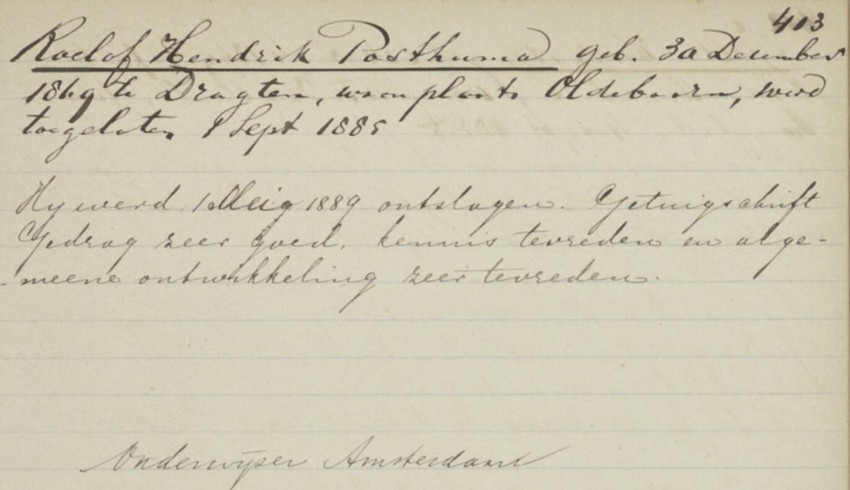 413
Roelof Hendrik Posthuma geb. 30 December
1869 te Dragten, woonplaats Oldeboorn, werd
toegelaten 1 Sept 1885
Hy werd 1 Mei 1889 ontslagen. Getuigschrift
Gedrag zeer goed, kennis tevreden en alge-
-meene ontwikkeling zeer tevreden.
Onderwijzer Amsterdam